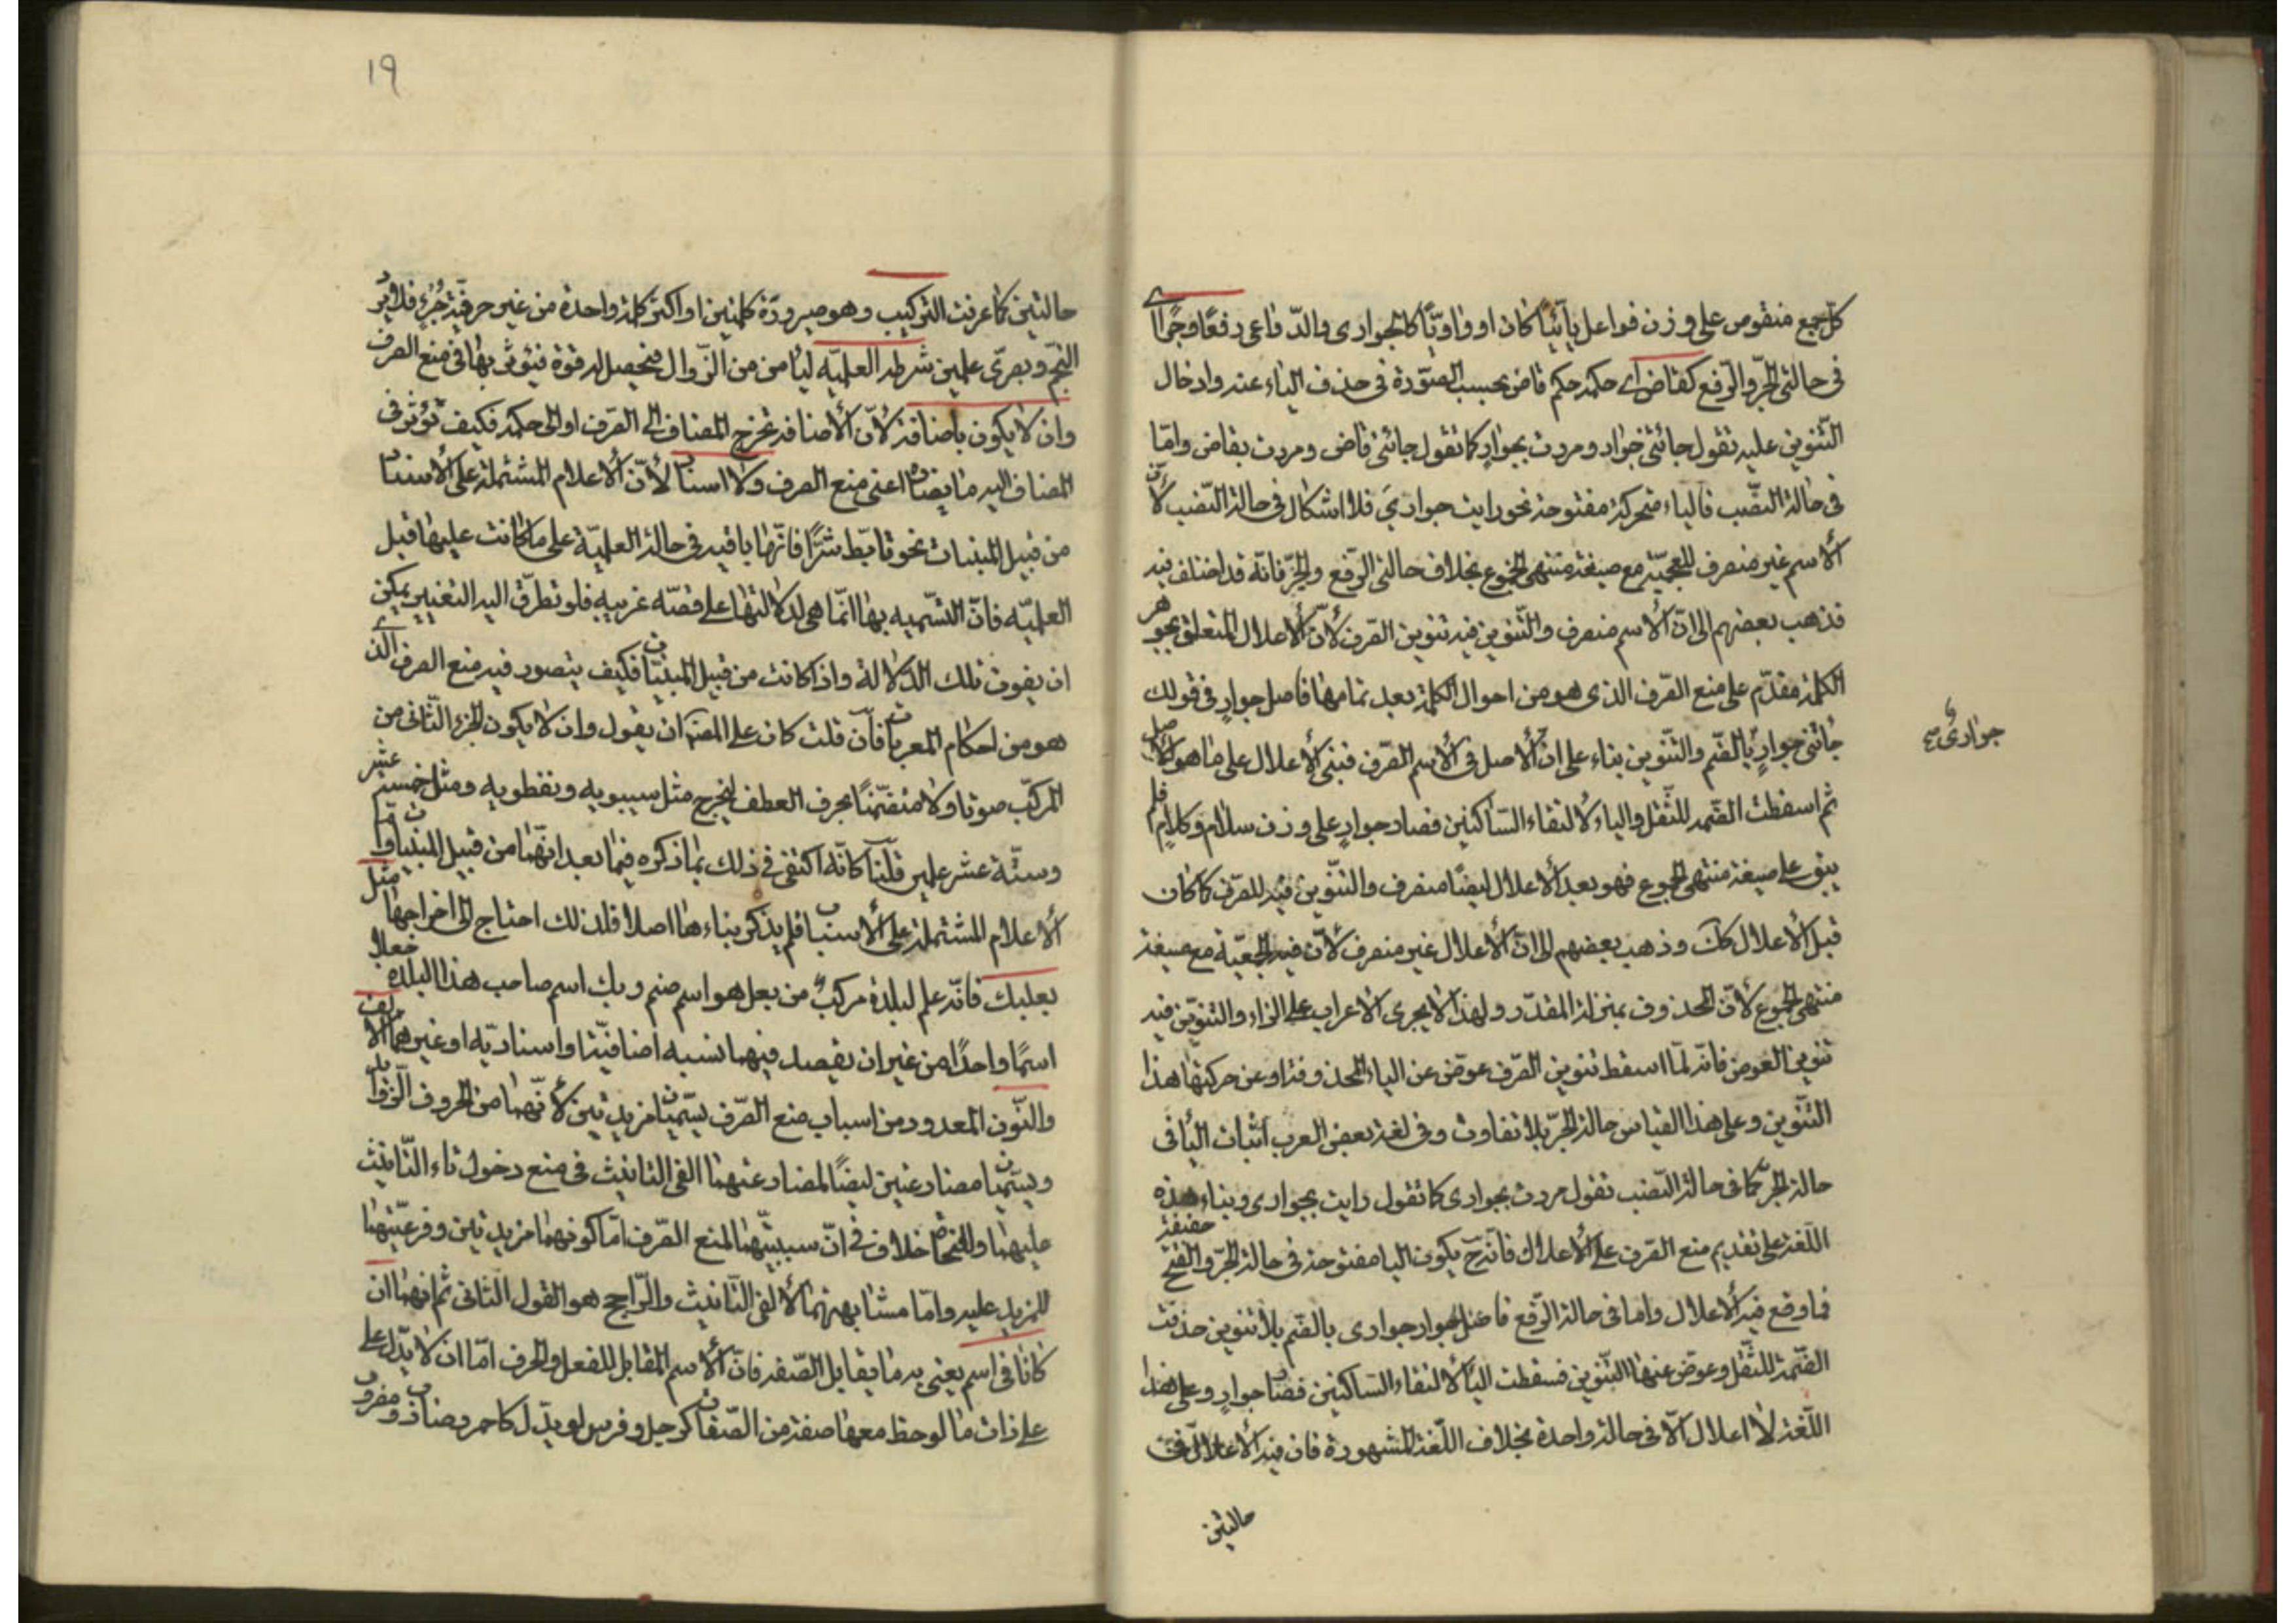 كل جمع منقوص على وزن فواعل يائيّا كان او واويّا كالجوارى والدّواعى رفعًا وجرًّا اى
فى حالتى الجرّ والرّفع كقاض اى حكمه حكم قاض بحسب الصّورة فى حذف الياء عنه وادخال
التّنوين عليه تقول جائتنى جوارٍ ومررت بجوارٍ كما تقول جائنى قاض ومررت بقاض وامّا
فى حالة النصّب فالياء متحركة مفتوحة نحو رايت جوارىَ فلا اشكال فى حالة النّصب لانّ
الاسم غير منصرف للجمعيّة مع صيغة منتهى الجموع بخلاف حالتى الرّفع والجرّ فانّه قد اختلف فيه
فذهب بعضهم الى انّ الاسم منصرف والتّنوين فيه تنوين الصّرف لانّ الاعلال المتعلق بجوهر
الكلمة مقدّم على منع الصّرف الذى هو من احوال الكلمة بعد تمامها فاصل جوارٍ فى قولك
جائتنى جوارٍ جوارىٌ بالضّم والتّنوين بناء على انّ الاصل فى الاسم الصّرف فبنى الاعلال على ما هو الاصل
ثم اسقطت الضّمة للثّقل والياء لالتقاء السّاكنين فصار جوارٍ على وزن سلام وكلام فلم
يبق على صيغة منتهى الجموع فهو بعد الاعلال ايضًا منصرف والتّنوين فيه للصّرف كما كان
قبل الاعلال كك وذهب بعضهم الى انّ الاعلال غير منصرف لانّ فيه الجمعيّة مع صيغة
منتهى الجموع لانّ المحذوف بمنزلة المقدّر ولهذا لا يجرى الاعراب على الرّاء والتنوين فيه
تنوين العوض فانّه لمّا اسقط تنوين الصّرف عوّض عن الياء المحذوفة او عن حركتها هذا
التّنوين وعلى هذا القياس حالة الجرّ بلا تفاوت وفى لغة بعض العرب اثبات اليا فى
حالة الجرّ كما فى حالة النّصب تقول مررت بجوارى كما تقول رايت بجوارى وبناء هذه
اللّغة على تقديم منع الصّرف على الاعلال فانّه ح يكون اليا مفتوحة فى حالة الجرّ والفتح خفيفة
فما وقع فيه الاعلال واما فى حالة الرّفع فاصل جوار جوارى بالضّم بلا تنوين حذفت
الضّمة للثّقل وعوّض عنها التّنوين فسقطت اليا لالتقاء السّاكنين فصار جوارٍ وعلى هذا
اللّغة لا اعلال الّا فى حالة واحدة بخلاف اللّغة المشهورة فان فيه الاعلال فى
حالتين
جوارىٌ
١٩
حالتين كما عرفت التركيب وهو صيرورة كلمتين او اكثر كلمة واحدة من غير حرفيّة جزء فلا يرد
النّجم وبصرى علمين شرطه العلميّه ليأمن من الزّوال فيحصل له قوة فيؤثر بها فى منع الصرف
وان لا يكون باضافة لانّ الاضافة تخرج المضاف الى الصّرف او الى حكمه فكيف تؤثر فى
المضاف اليه ما يضاده اعنى منع الصرف ولا اسناد لانّ الاعلام المشتملة على الاسناد
من قبيل المبنيات نحو تابّط شرًّا فانّها باقية فى حالة العلميّة على ما كانت عليها قبل
العلميّه فانّ التسّميه بها انّما هى لدلالتها على قصّه غريبه فلو تطرّق اليه التغيير يمكن
ان يفوت تلك الدّلالة واذا كانت من قبيل المبنيّات فكيف يتصور فيه منع الصرف الذى
هو من احكام المعربات فان قلت كان على المصّ ان يقول وان لا يكون الجزء الثّانى من
المركبّ صوتا ولا متضمّنًا بحرف العطف ليخرج مثل سيبويه ونفطويه ومثل خمسة عشر
وستّة عشر علمين قلنا كانّه اكتفى فى ذلك بما ذكره فيما بعد انّهما من قبيل المبنيات وامّا
الاعلام المشتملة على الاسناد فلم يذكر بناءها اصلا فلذلك احتاج الى اخراجها مثل
بعلبك فانّه علم لبلدة مركبٌ من بعل هو اسم صنم وبك اسم صاحب هذا البلده جعلا
اسمًا واحدًا من غير ان يقصد فيهما نسبه اضافيّة او اسناديّه او غيرهما الالف
والنّون المعدود من اسباب منع الصّرف يسّميان مزيدتين لانّهما من الحروف الزّوايد
ويسّميان مضارعتين ايضًا لمضارعتهما الفى التانيث فى منع دخول تاء التّانيث
عليهما وللنحاة خلاف فى انّ سببيّتهما لمنع الصّرف امّا كونهما مزيدتين وفرعيّتهما
للمزيد عليه وامّا مشابهتهما لالفى التّانيث والرّاجح هو القول الثانى ثم انهما ان
كانا فى اسم يعنى به ما يقابل الصّفة فانّ الاسم المقابل للفعل والحرف امّا ان لا يدّل على
على ذات ما لوحظ معها صفة من الصّفات كرجل وفرس او يدّل كاحمر وضارب ومضروب